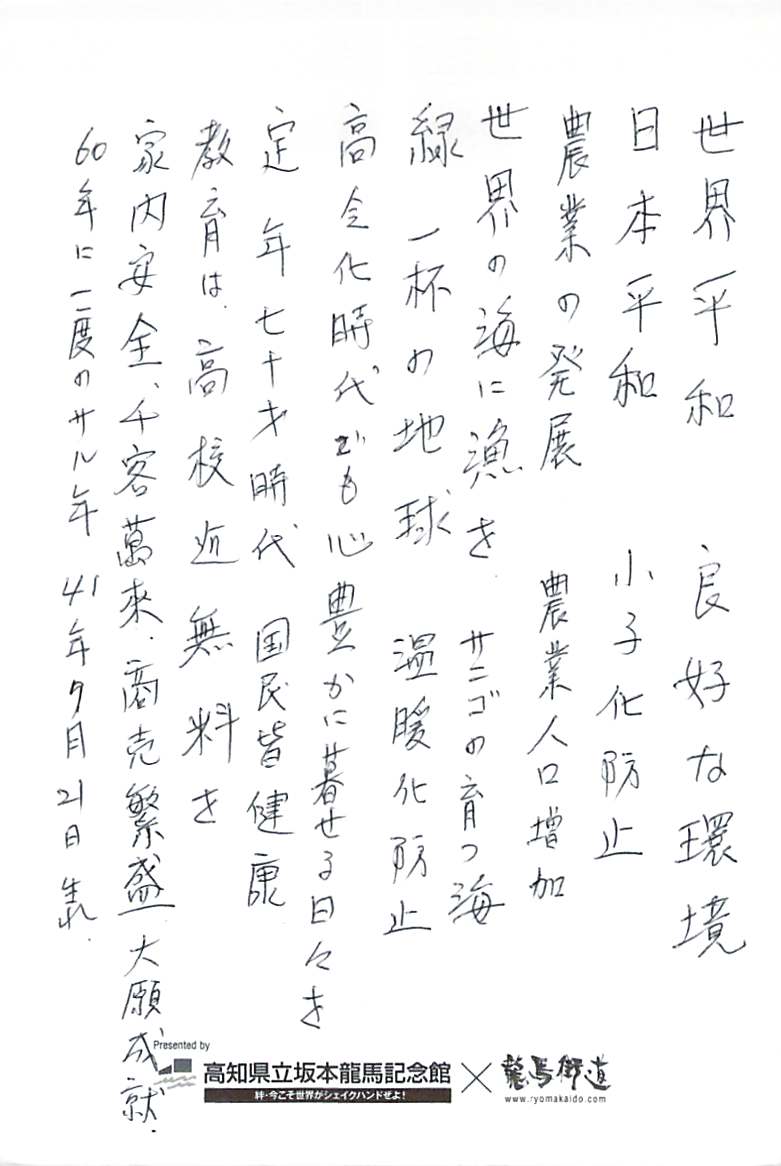 世界平和　良好な環境
日本平和　小子化防止
農業の発展　農業人口増加
世界の海に漁を　サンゴの育つ海
緑一杯の地球　温暖化防止
高令化時代でも心豊かに暮せる日々を
定年七十才時代　国民皆健康
教育は、高校迄無料を
家内安全、千客萬来、商売繁盛、大願成就.
60年に一度のサル年　41年9月21日生れ.
Presented by
高知県立坂本龍馬記念館
絆・今こそ世界がシェイクハンドぜよ!
×
龍馬街道
www.ryomakaido.com